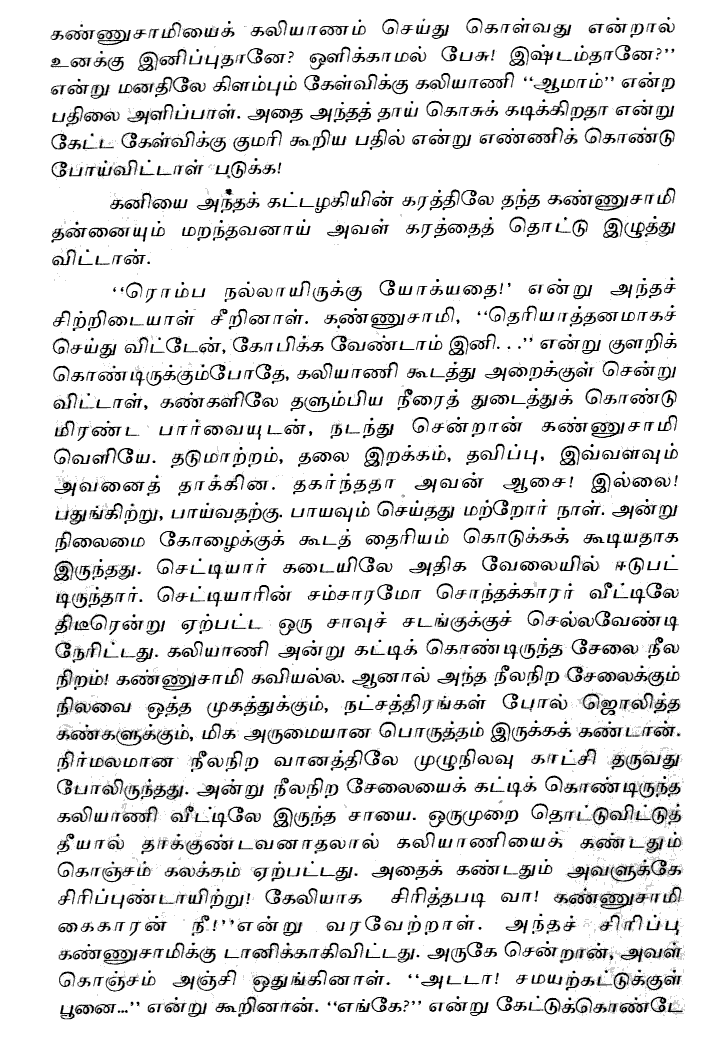 கண்ணுசாமியைக் கலியாணம் செய்து கொள்வது என்றால்
உனக்கு இனிப்புதானே? ஒளிக்காமல் பேசு! இஷ்டம்தானே?''
என்று மனதிலே கிளம்பும் கேள்விக்கு கலியாணி ''ஆமாம்'' என்ற
பதிலை அளிப்பாள். அதை அந்தத் தாய் கொசுக் கடிக்கிறதா என்று
கேட்ட கேள்விக்கு குமரி கூறிய பதில் என்று எண்ணிக் கொண்டு
போய்விட்டாள் படுக்க!
கனியை அந்தக் கட்டழகியின் கரத்திலே தந்த கண்ணுசாமி
தன்னையும் மறந்தவனாய் அவள் கரத்தைத் தொட்டு இழுத்து
விட்டான்.
''ரொம்ப நல்லாயிருக்கு யோக்யதை!' என்று அந்தச்
சிற்றிடையாள் சீறினாள். கண்ணுசாமி, ''தெரியாத்தனமாகச்
செய்து விட்டேன், கோபிக்க வேண்டாம் இனி. . .'' என்று குளறிக்
கொண்டிருக்கும்போதே, கலியாணி கூடத்து அறைக்குள் சென்று
விட்டாள், கண்களிலே தளும்பிய நீரைத் துடைத்துக் கொண்டு
மிரண்ட பார்வையுடன், நடந்து சென்றான் கண்ணுசாமி
வெளியே. தடுமாற்றம், தலை இறக்கம், தவிப்பு, இவ்வளவும்
அவனைத் தாக்கின. தகர்ந்ததா அவன் ஆசை! இல்லை!
பதுங்கிற்று, பாய்வதற்கு. பாயவும் செய்தது மற்றோர் நாள். அன்று
நிலைமை கோழைக்குக் கூடத் தைரியம் கொடுக்கக் கூடியதாக
இருந்தது. செட்டியார் கடையிலே அதிக வேலையில் ஈடுபட்
டிருந்தார். செட்டியாரின் சம்சாரமோ சொந்தக்காரர் வீட்டிலே
திடீரென்று ஏற்பட்ட ஒரு சாவுச் சடங்குக்குச் செல்லவேண்டி
நேரிட்டது. கலியாணி அன்று கட்டிக் கொண்டிருந்த சேலை நீல
நிறம்! கண்ணுசாமி கவியல்ல. ஆனால் அந்த நீலநிற சேலைக்கும்
நிலவை ஒத்த முகத்துக்கும், நட்சத்திரங்கள் போல் ஜொலித்த
கண்களுக்கும், மிக அருமையான பொருத்தம் இருக்கக் கண்டான்.
நிர்மலமான நீலநிற வானத்திலே முழுநிலவு காட்சி தருவது
போலிருந்தது. அன்று நீலநிற சேலையைக் கட்டிக் கொண்டிருந்த
கலியாணி வீட்டிலே இருந்த சாயை. ஒருமுறை தொட்டுவிட்டுத்
தீயால் தாக்குண்டவனாதலால் கலியாணியைக் கண்டதும்
கொஞ்சம் கலக்கம் ஏற்பட்டது. அதைக் கண்டதும் அவளுக்கே
சிரிப்புண்டாயிற்று! கேலியாக சிரித்தபடி வா! கண்ணுசாமி
கைகாரன் நீ!''என்று வரவேற்றாள். அந்தச் சிரிப்பு
கண்ணுசாமிக்கு டானிக்காகிவிட்டது. அருகே சென்றான், அவள்
கொஞ்சம் அஞ்சி ஒதுங்கினாள். ''அடடா! சமயற்கட்டுக்குள்
பூனை...'' என்று கூறினான். ''எங்கே?'' என்று கேட்டுக்கொண்டே